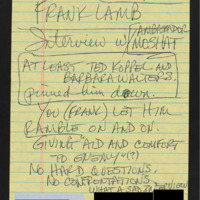 FRANK LAMB
Interview w/ AMBASSADOR
MOSHAT
AT LEAST TED KOPPEL AND
BARBARA WALTERS.
pinned him down.
YOU (FRANK) LET HIM
RAMBLE ON AND ON.
GIVING "AID AND COMFORT
TO ENEMY"(?)
NO HARD QUESTIONS.
NO CONFRONTATIONS.
WHAT A SAD INTERVIEW